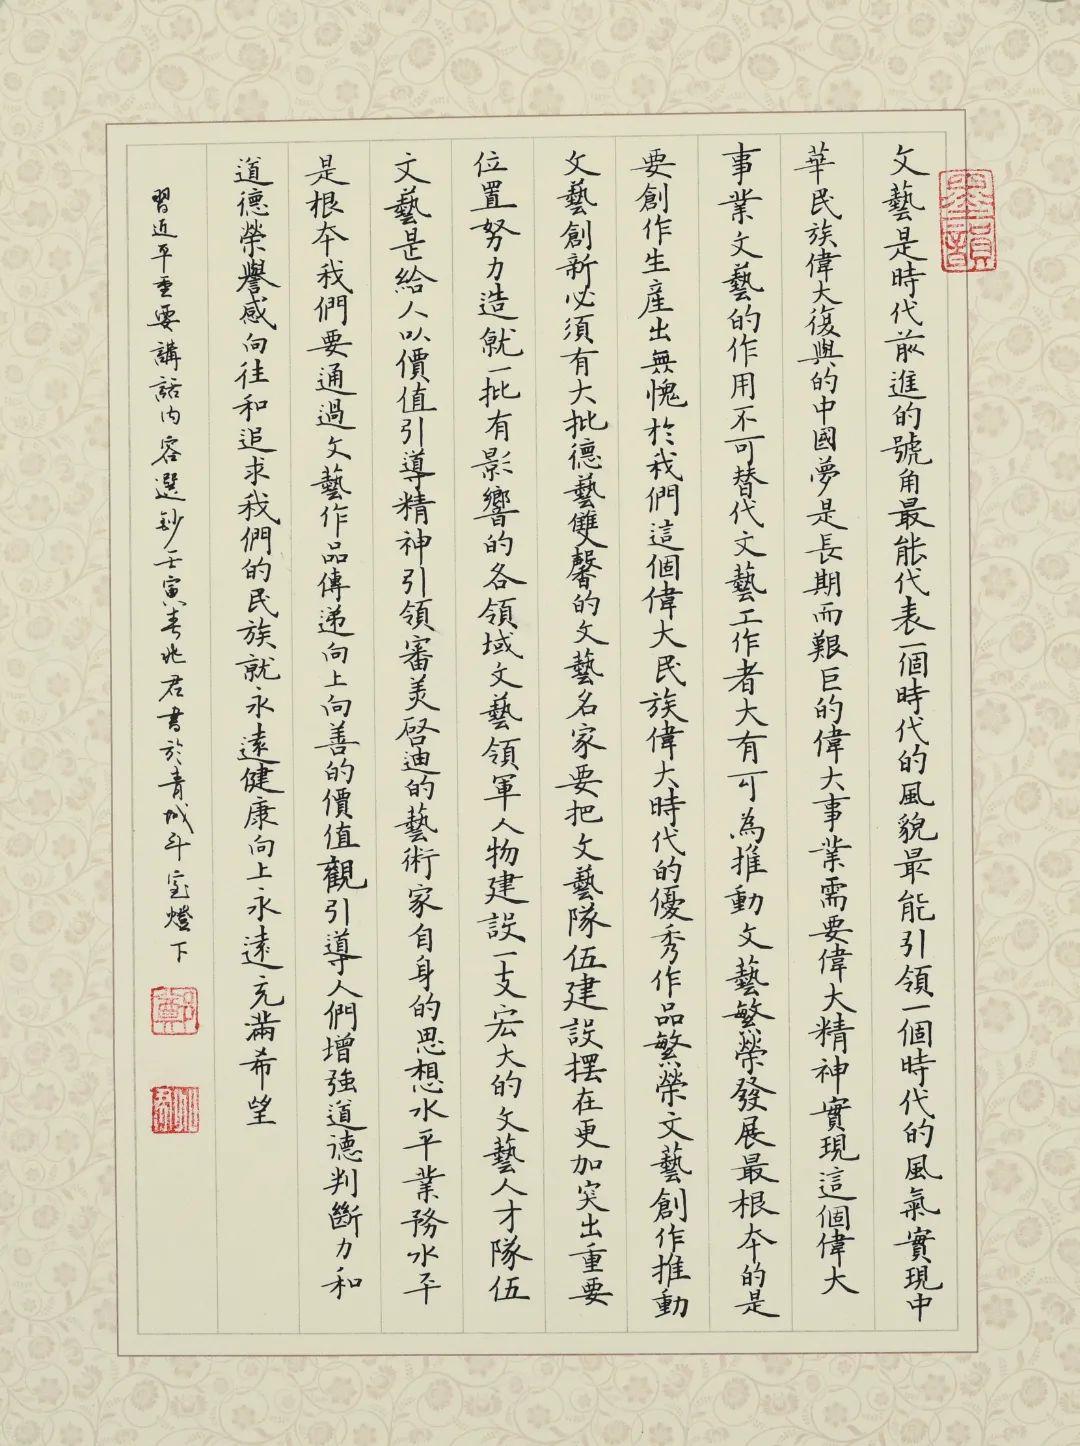 文藝是時代前進的號角最能代表一個時代的風貌最能引領一個時代的風氣實現中
華民族偉大復興的中國夢是長期而艱巨的偉大事業需要偉大精神實現這個偉大
事業文藝的作用不可替代文藝工作者大有可為推動文藝繁榮發展最根本的是
要創作生產出無愧於我們這個偉大民族偉大時代的優秀作品繁榮文藝創作推動
文藝創新必須有大批德藝雙馨的文藝名家要把文藝隊伍建設擺在更加突出重要
位置努力造就一批有影響的各領域文藝領軍人物建設一支宏大的文藝人才隊伍
文藝是給人以價值引導精神引領審美啓迪的藝術家自身的思想水平業務水平
是根本我們要通過文藝作品傳递向上向善的價值觀引導人們增強道德判斷力和
道德榮譽感向往和追求我們的民族就永遠健康向上永遠充滿希望
習近平重要講話內容選鈔壬寅春兆君書於青城斗室燈下